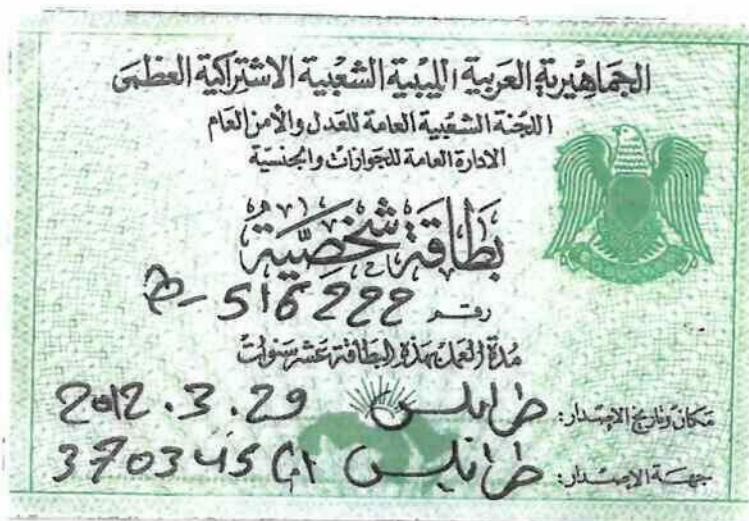 الجماهيرية العربية الليبية الشعبية الاشتراكية العظمى
اللجنة الشعبية العامة للعدل والأمن العام
الادارة العامة للجوازات والجنسية
بطاقة شخصية
رقم 516222
مدة العمل بهذه البطاقة عشر سنوات
مكان وتاريخ الاصدار: طرابلس 2012.3.29
جهة الاصدار: طرابلس 370345